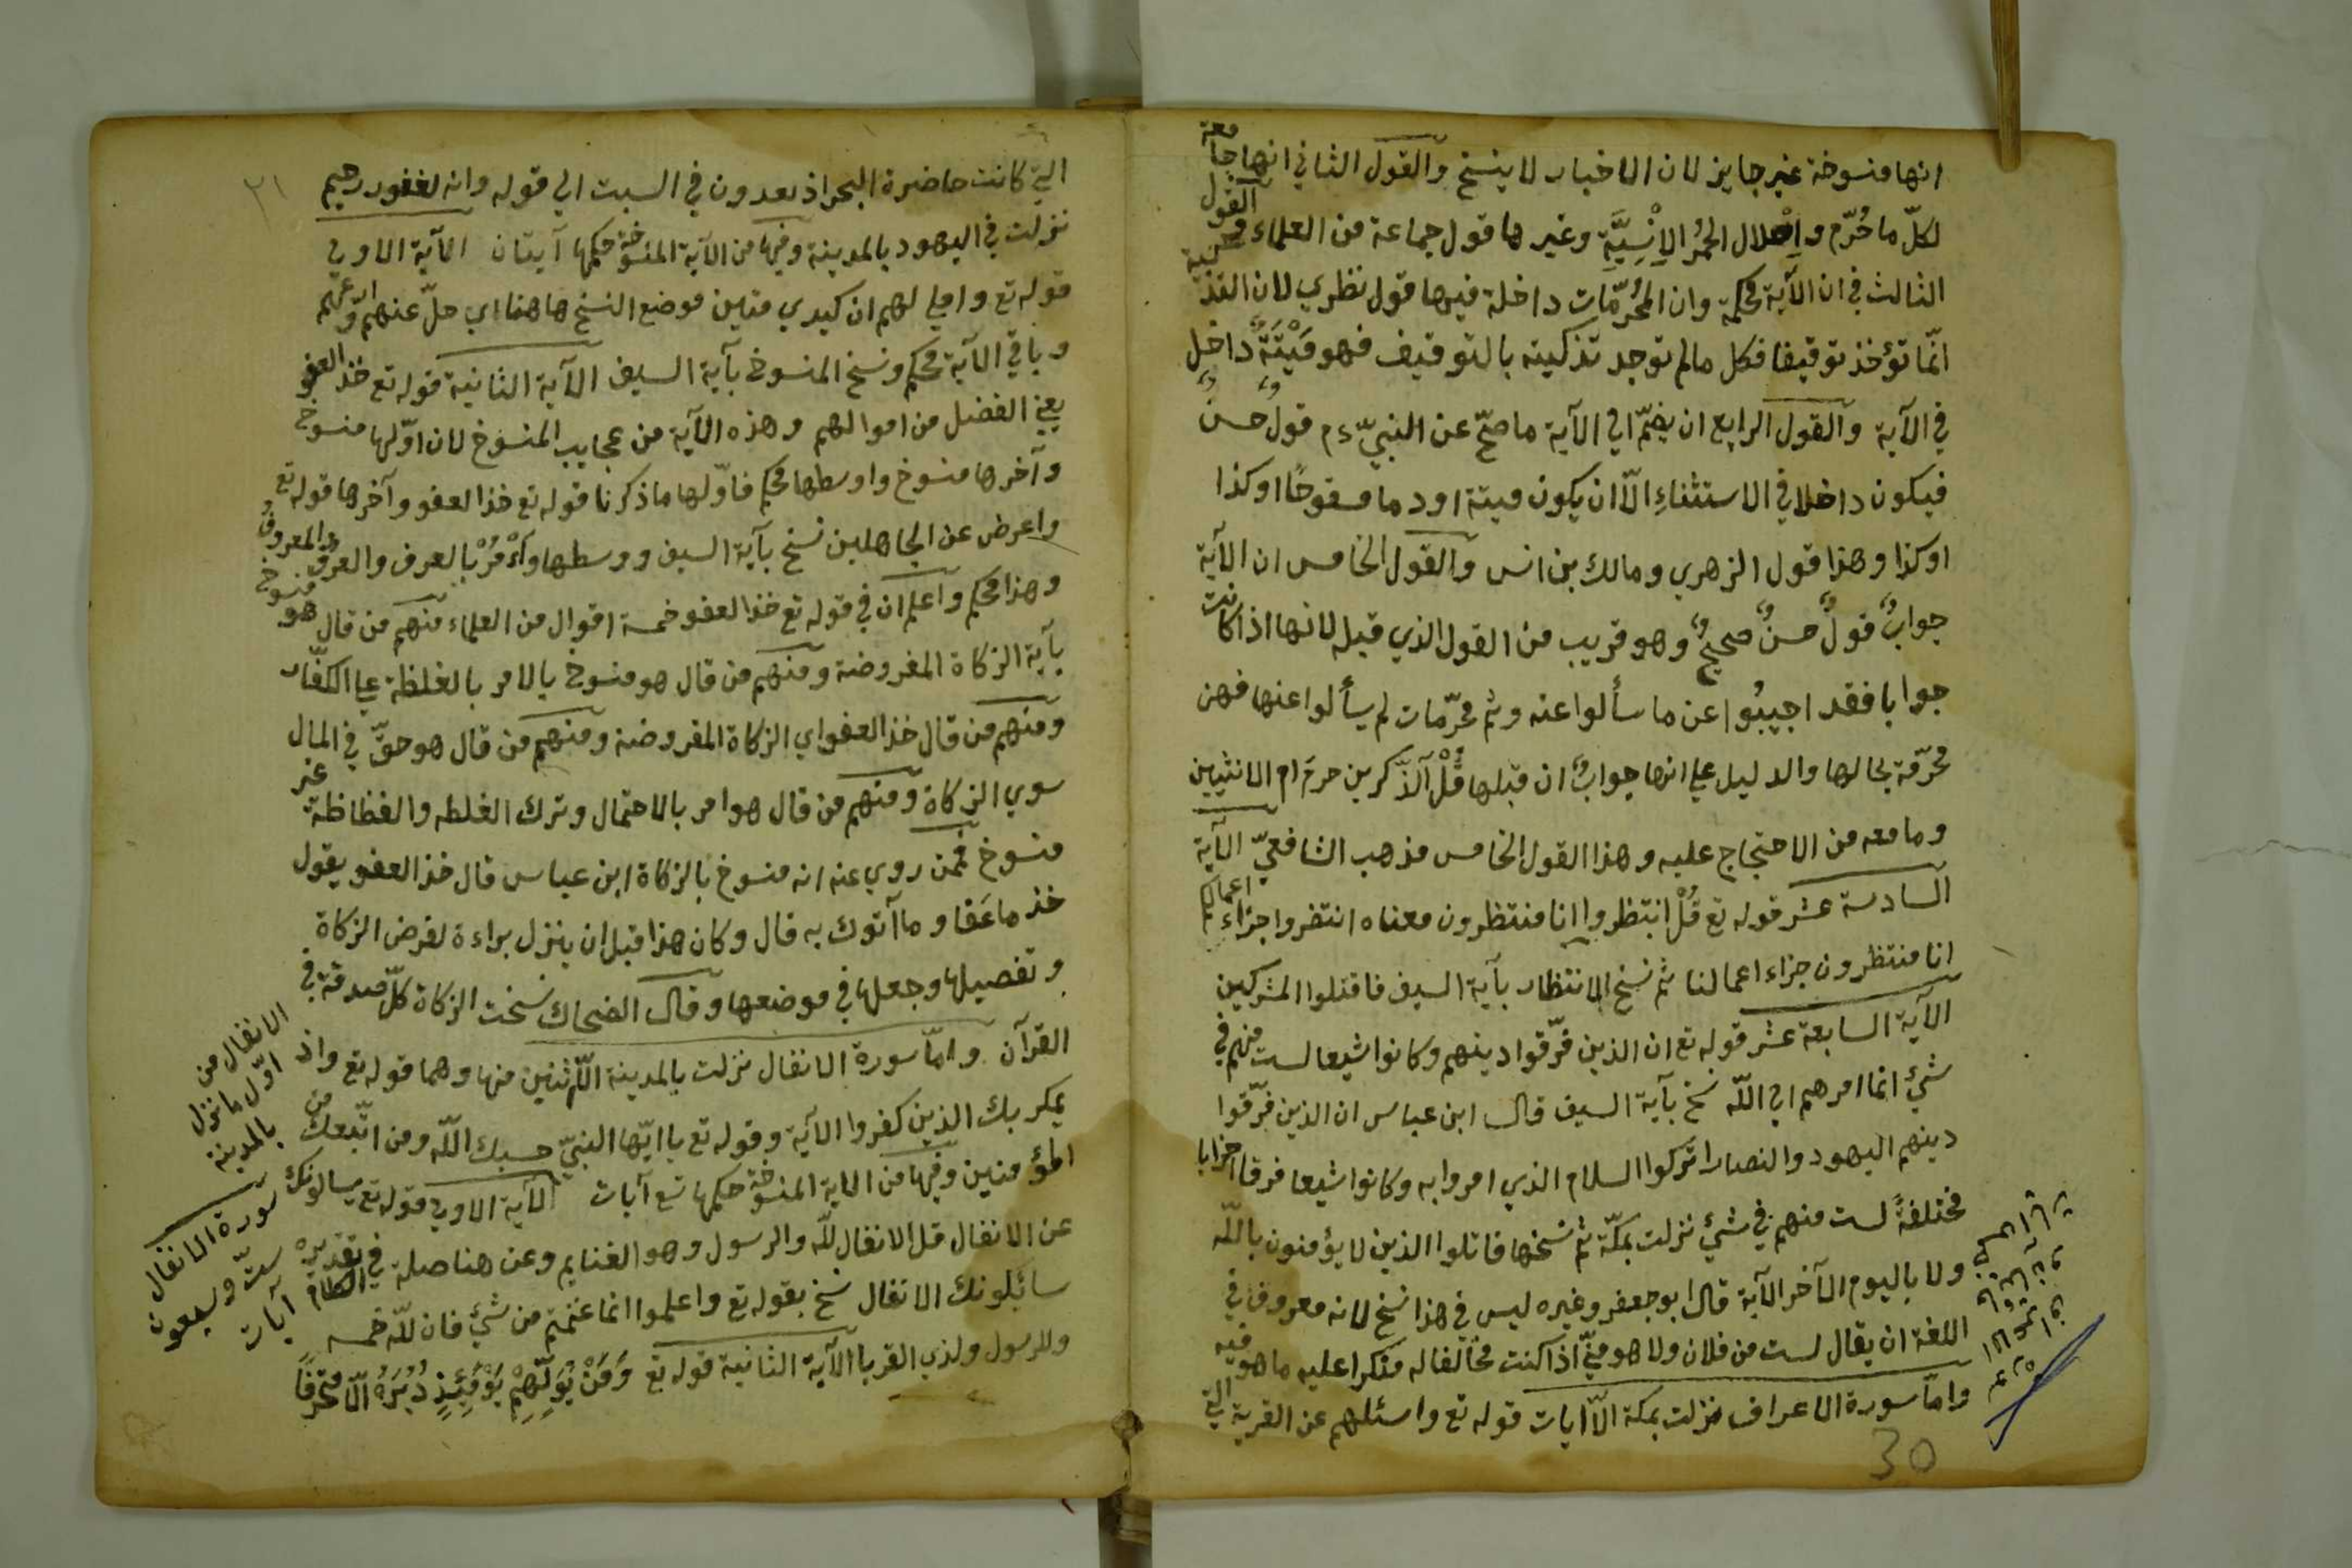 انها منسوخة غير جايز لان الاخبار لا ينسخ والقول الثاني انها جامعة
لكلّ ما حُرّم وإحلال الحُمُر الإِنْسِيَّةِ وغيرها قول جماعة من العلماء القول
الثالث في ان الآية محكمة وان المحُرّمات داخلة فيها قول نظري لان التذكية
انّما تؤخذ توقيفا فكل مالم توجد تذكيته بالتوقيف فهو مَيْتَةٌ داخل
في الآية والقول الرابع ان يضمّ الي الآية ما صحّ عن النبيّ ءم قولٌ حسنٌ
فيكون داخلا في الاستثناءِ الّا ان يكون ميتة او دما مسفوحًا او كذا
او كذا وهذا قول الزهري ومالك بن انس والقول الخامس ان الآية
جوابٌ قولٌ حسنٌ صحيحٌ وهو قريب من القول الذي قبله لانها اذا كانت
جوابا فقد اجيبُوا عن ما سألوا عنه وثم محرّمات لم يسألوا عنها فهن
محرّمة بحالها والدليل علي انها جوابٌ ان قبلها قُلْ آلذّكرين حرم ام الانثيين
وما معه من الاحتجاج عليه وهذا القول الخامس مذهب الشافعيّ الآية
السادسة عشر قوله تع قُلْ انتظروا انا منتظرون معناه انتضروا جزاء اعمالكم
انا منتظرون جزاء اعمالنا ثم نسخ الانتظار بآية السيف فاقتلوا المشركين
الآية السابعة عشر قوله تع ان الذين فرّقوا دينهم وكانوا شيعا لست منهم في
شيئ انما امرهم الي اللّه نسخ بآية السيف قال ابن عباس ان الذين فرّقوا
دينهم اليهود والنصارا تركوا السلام الذي امروا به وكانوا شيعا فرقا احزابا
مختلفةً لست منهم في شيئ نزلت بمكّة ثم نسخها قاتلوا الذين لا يؤمنون باللّه
ولا باليوم الآخر الآية قال ابو جعفر وغيره ليس في هذا نسخ لانه معروف في
اللغة ان يقال لست من فلان ولا هو منّي اذا كنت مخالفا له منكرا عليه ما هو فيه
وامّا سورة الاعراف نزلت بمكة الّا ايات قوله تع واسئلهم عن القرية التي
30
٣١
التي كانت حاضرة البحر اذ يعدون في السبت الي قوله وانه لغفور رحيم
نزلت في اليهود بالمدينة وفيها من الآية المنسوخة حكمها آيتان الآية الاولي
قوله تع واملي لهم ان كيدي متين موضع النسخ هاهنا اي خلّ عنهم ودعهم
وباقي الآية محكم ونسخ المنسوخ بآية السيف الآية الثانية قوله تع خذ العفو
يعني الفضل من اموالهم وهذه الآية من عجايب المنسوخ لان اوّلها منسوخ
وآخرها منسوخ واوسطها محكم فاوّلها ما ذكرنا قوله تع خذ العفو وآخرها قوله تع
واعرض عن الجاهلين نسخ بآية السيف ووسطها وَأْمُرْ بالعرف والعرف المعروف
وهذا محكم واعلم ان في قوله تع خذ العفو خمسة اقوال من العلماء منهم من قال هو منسوخ
بآية الزكاة المفروضة ومنهم من قال هو منسوخ بالامر بالغلظة علي الكفّار
ومنهم من قال خذ العفو اي الزكاة المفروضة ومنهم من قال هو حقّ في المال
سوي الزكاة ومنهم من قال هو امر بالاحتمال وترك الغلظه والفظاظة غير
منسوخ فممن روي عنه انه منسوخ بالزكاة ابن عباس قال خذ العفو يقول
خذ ما عَفا وما آتوك به قال وكان هذا قبل ان ينزل براءة لفرض الزكاة
وتفصيلها وجعلها في موضعها وقال الضحاك نسخت الزكاة كلّ صدقة في
القرآن وامّا سورة الانفال نزلت بالمدينة الّا ثنين منها وهما قوله تع واذ
يمكر بك الذين كفروا الآية وقوله تع يا ايّها النبيّ حسبك اللّه ومن اتّبعك من
المؤمنين وفيها من الاية المنسوخة حكمها تسع آيات الآية الاولي قوله تع يسالونك
عن الانفال قل الانفال للّه والرسول وهو الغنايم وعن هنا صلة في الكلام تقديره
سائلونك الانفال نسخ بقوله تع واعلموا انما غنمتم من شيئ فان للّه خمسه
وللرسول ولذي القربا الآية الثانية قوله تع وَمَنْ يُوَلِّهِمْ يَوْمَئِذٍ دُبُرَهُ الّا متحرفًا
الانفال من
اوّل ما نزل
بالمدينة
سورة الانفال
ستّ وسبعون
آيات